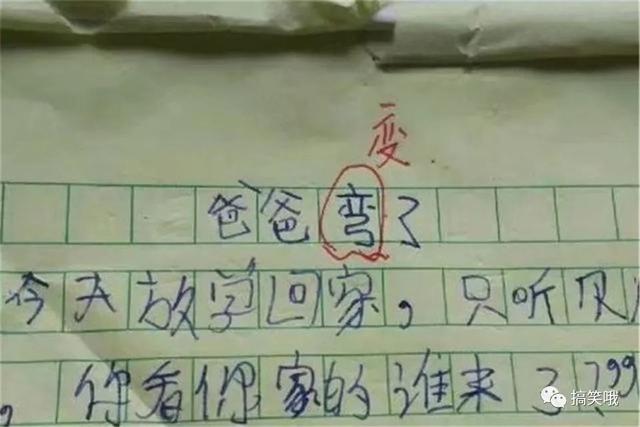 变
爸爸弯了
今天放学回家，只听见
，你看你家的谁来了？”
搞笑哦